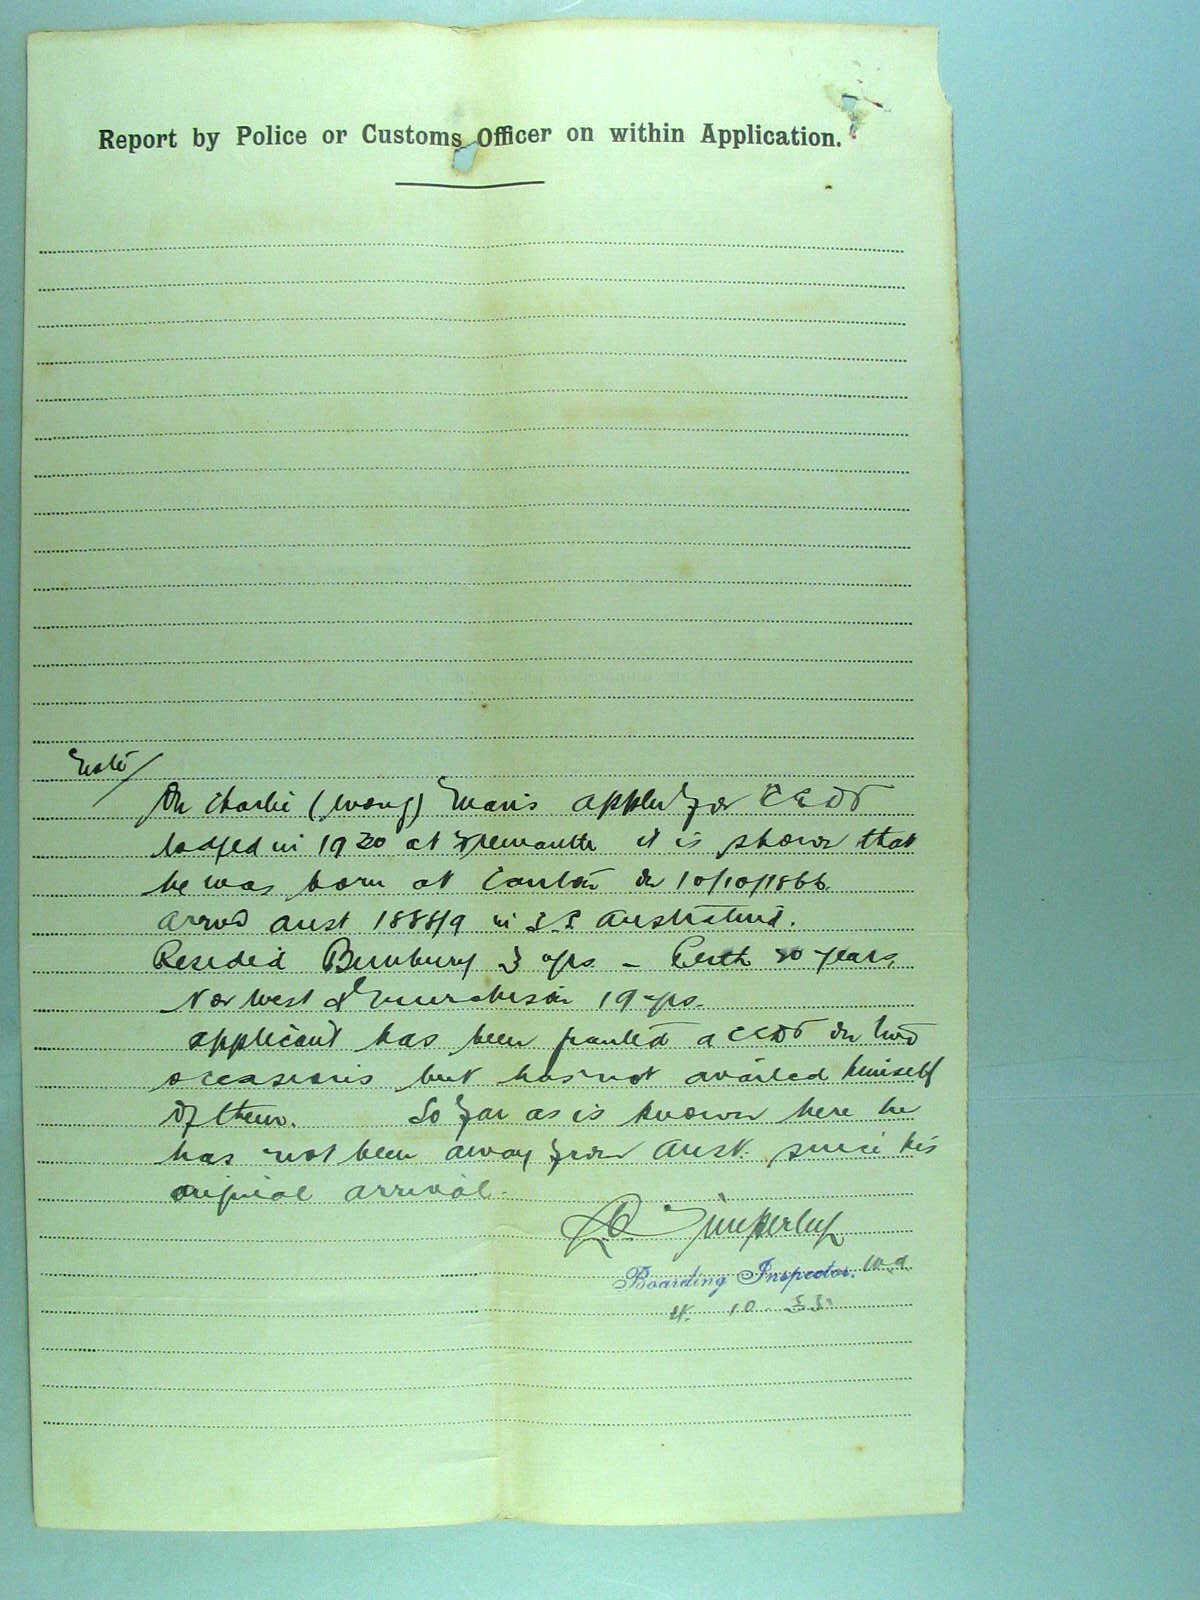 Report by Police or Customs Officer on within Application.
Note/
On Charlie (Wong) Man's appln for CEDT
lodged in 1920 at Fremantle it is shown that
he was born at Canton on 10/10/1866.
Arrvd Aust 1888/9 in S.S. Australind.
Resided Bunbury 3 yrs - Perth 20 years,
Nor West & Murchison 19 yrs.
applicant has been granted a CEDT on two
occasions but has not availed himself
of them. So far as is known here he
has not been away from Aust. since his
original arrival.
Timperley
Boarding Inspector. W.A
10. 33